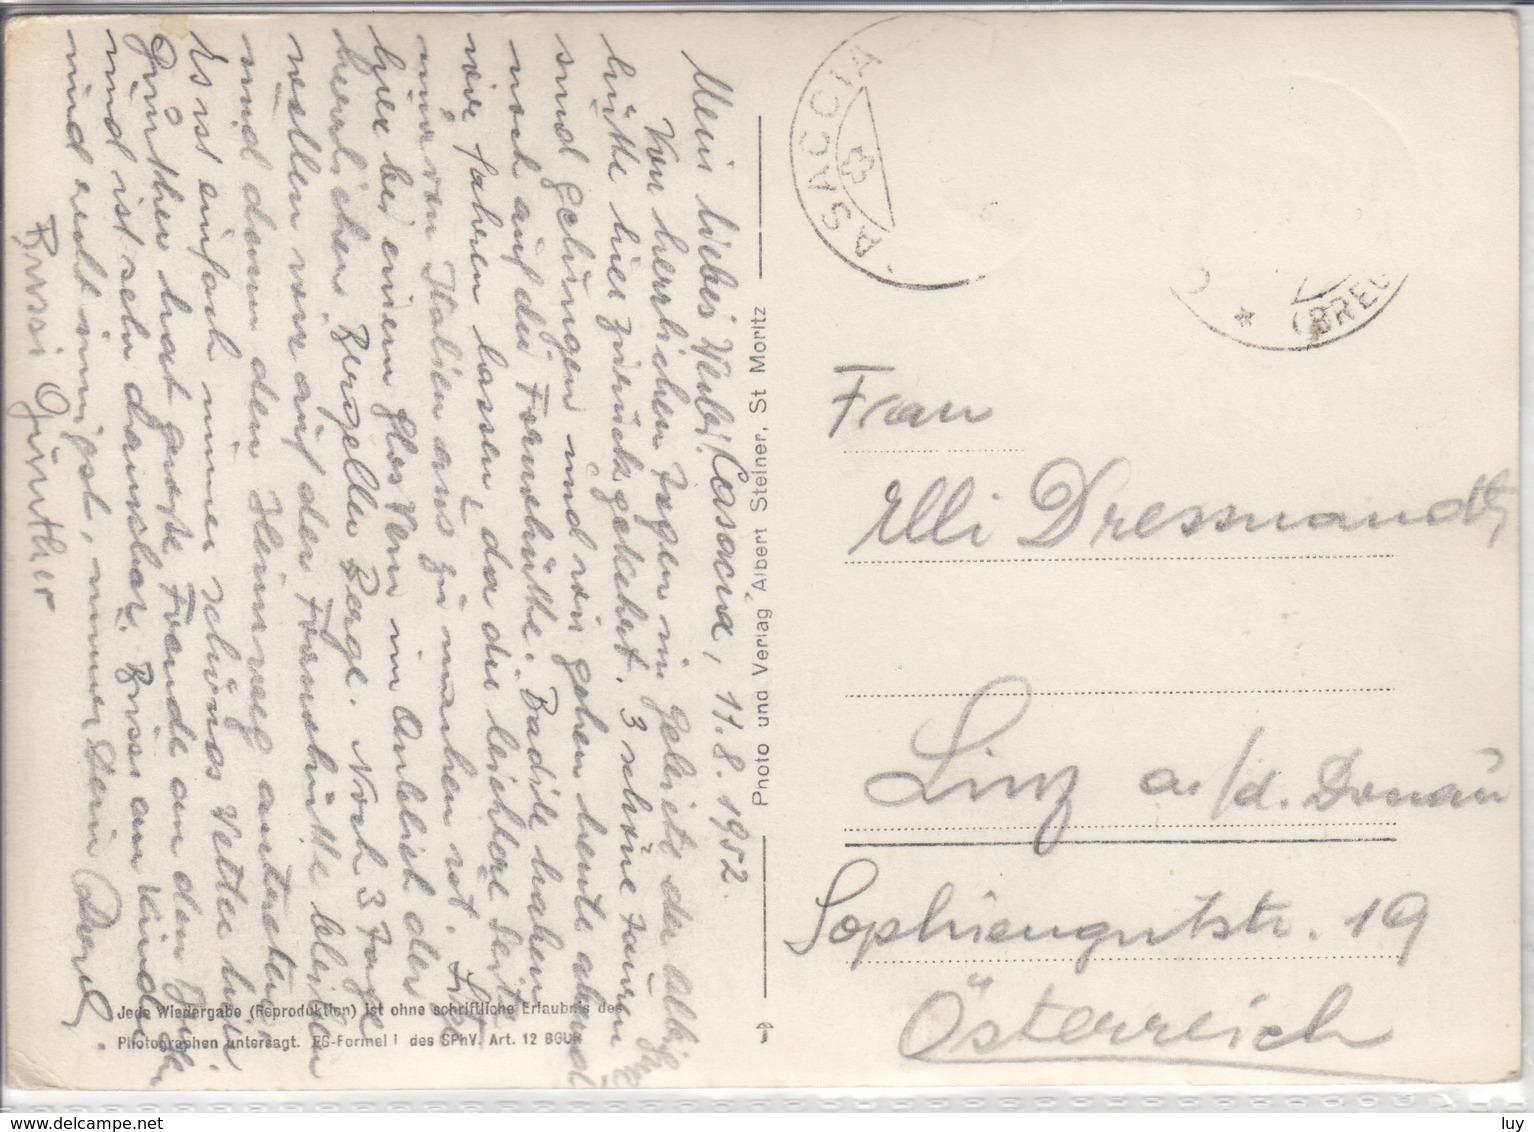 Mein liebes Weibi! Casacia, 11.8.1952.
Von herrlichen Tagen im Geleite der Albigna
hütte hier zurückgekehrt. 3 schöne Touren
sind gelungen und wir gehen heute abend
noch auf die Fornohütte. Badile haben
wir fahren lassen, da die leichtere Seite
nur von Italien aus zu machen ist.
hier bei einem Glas Wein im Anblick der
herrlichen Bergeller Berge. Noch 3 Tage
wollen wir auf der Fornohütte bleiben
und dann den Heimweg antreten.
Es ist einfach immer schönes Wetter hier.
Günther hat große Freude an den
und ist sehr dankbar. Bussi an
und recht innigst, immer Dein
Bussi Günther
Photo und Verlag Albert Steiner, St Moritz
Jede Wiedergabe (Reproduktion) ist ohne schriftliche Erlaubnis des
Photographen untersagt. ES-Formel I des SPhV. Art. 12 BGUR
CASACCIA
(BREG
Frau
Elli Dressnandt
Linz a./d. Donau
Sophiengutstr. 19
Österreich
luy